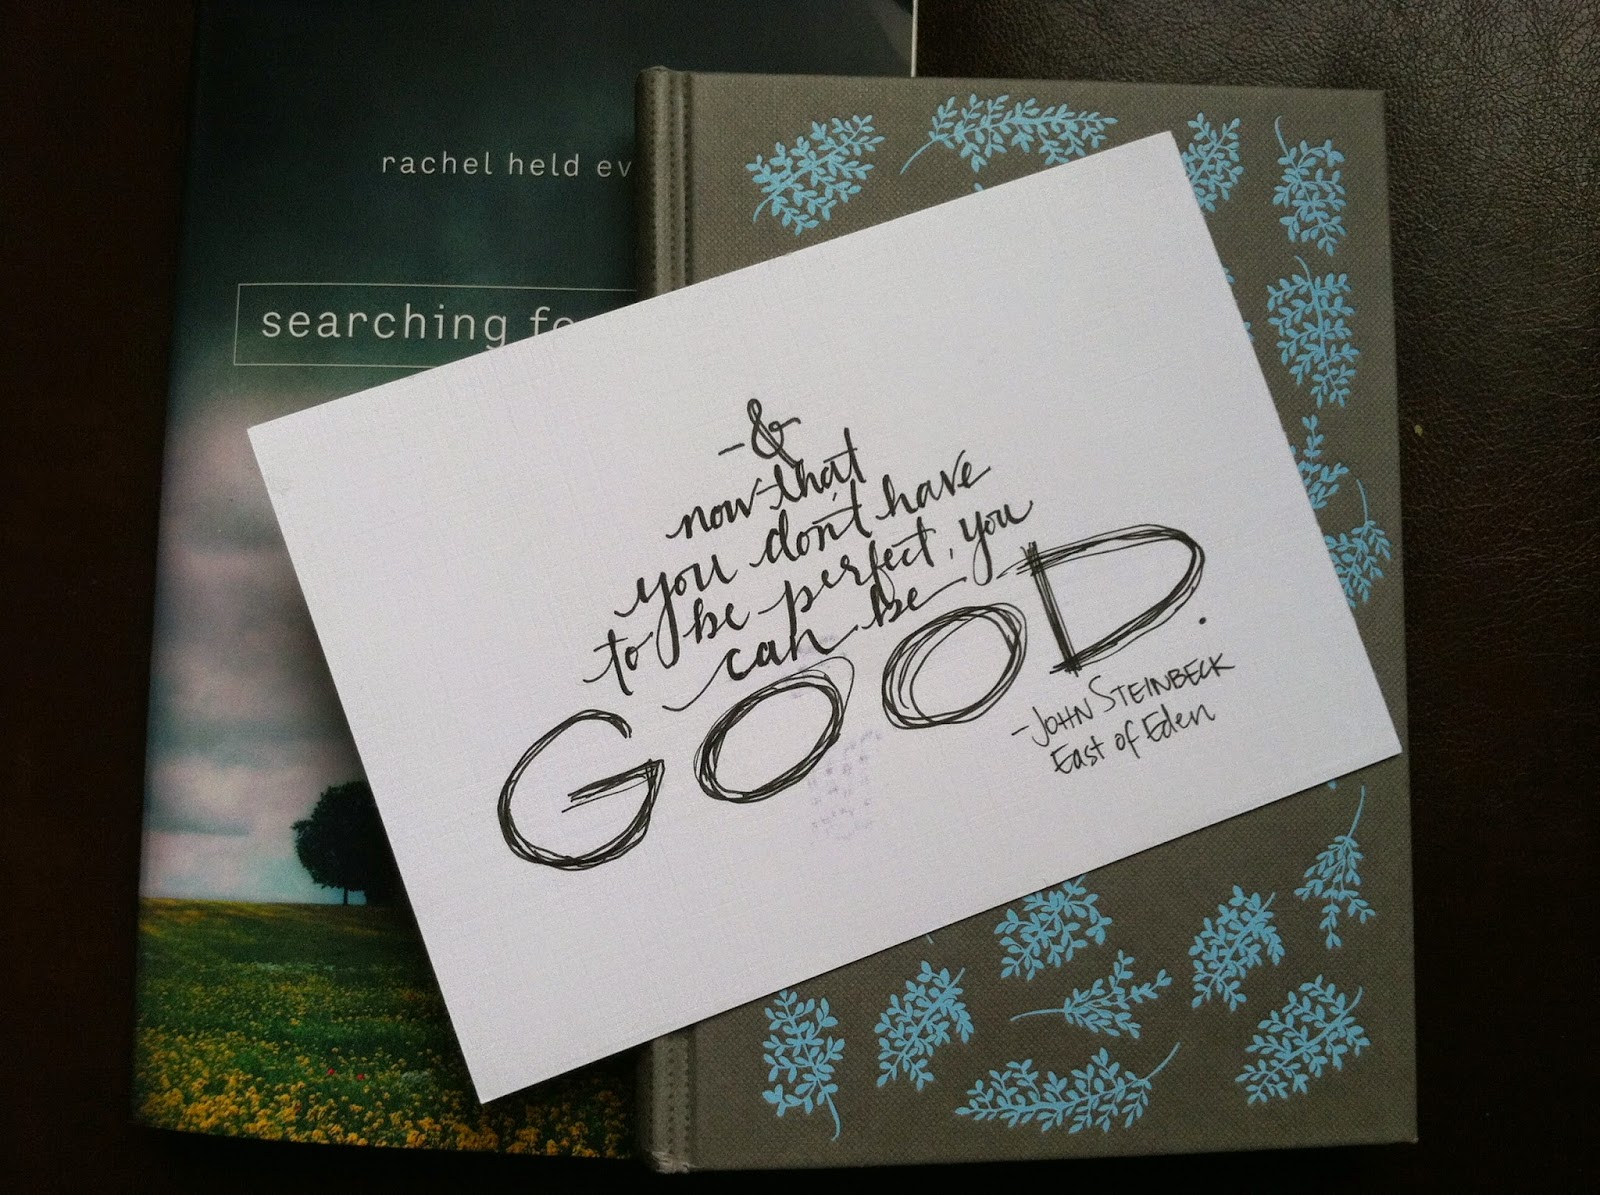 rachel held ev
searching fo
-&
now that
you don't have
to be perfect, you
can be
GOOD.
-JOHN STEINBECK
East of Eden